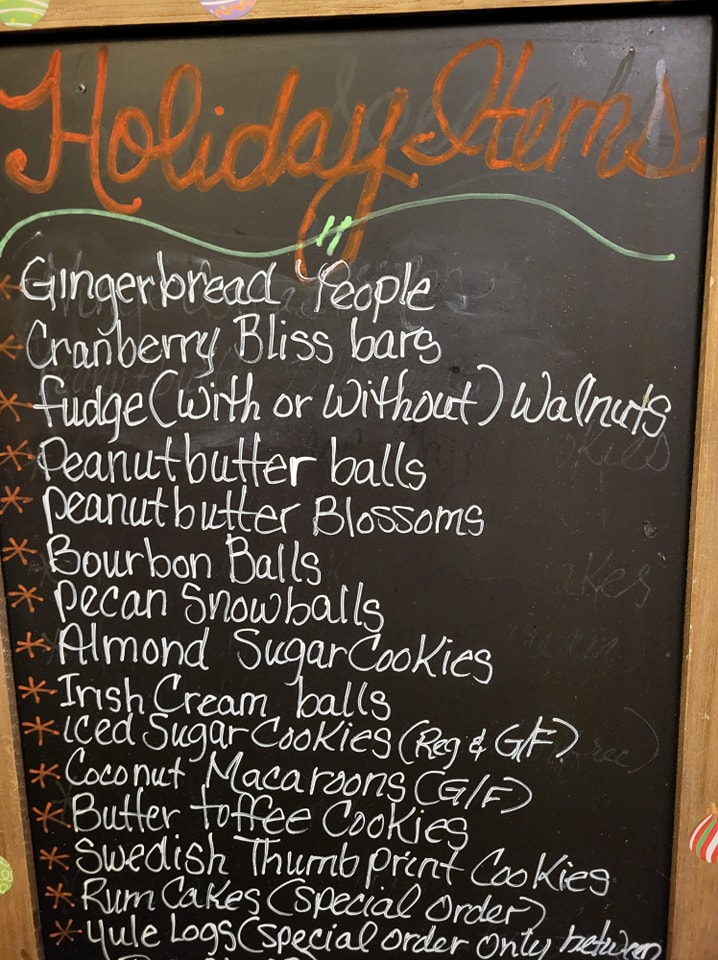 Holiday Items
"
* Gingerbread People
* Cranberry Bliss bars
* fudge (with or without) Walnuts
* Peanutbutter balls
* peanutbutter Blossoms
* Bourbon Balls
* pecan Snowballs
* Almond Sugar Cookies
* Irish Cream balls
* iced Sugar Cookies (Reg & G/F)
* Coconut Macaroons (G/F)
* Butter toffee Cookies
* Swedish Thumbprint Cookies
* Rum Cakes (special order)
* Yule Logs (special order only between